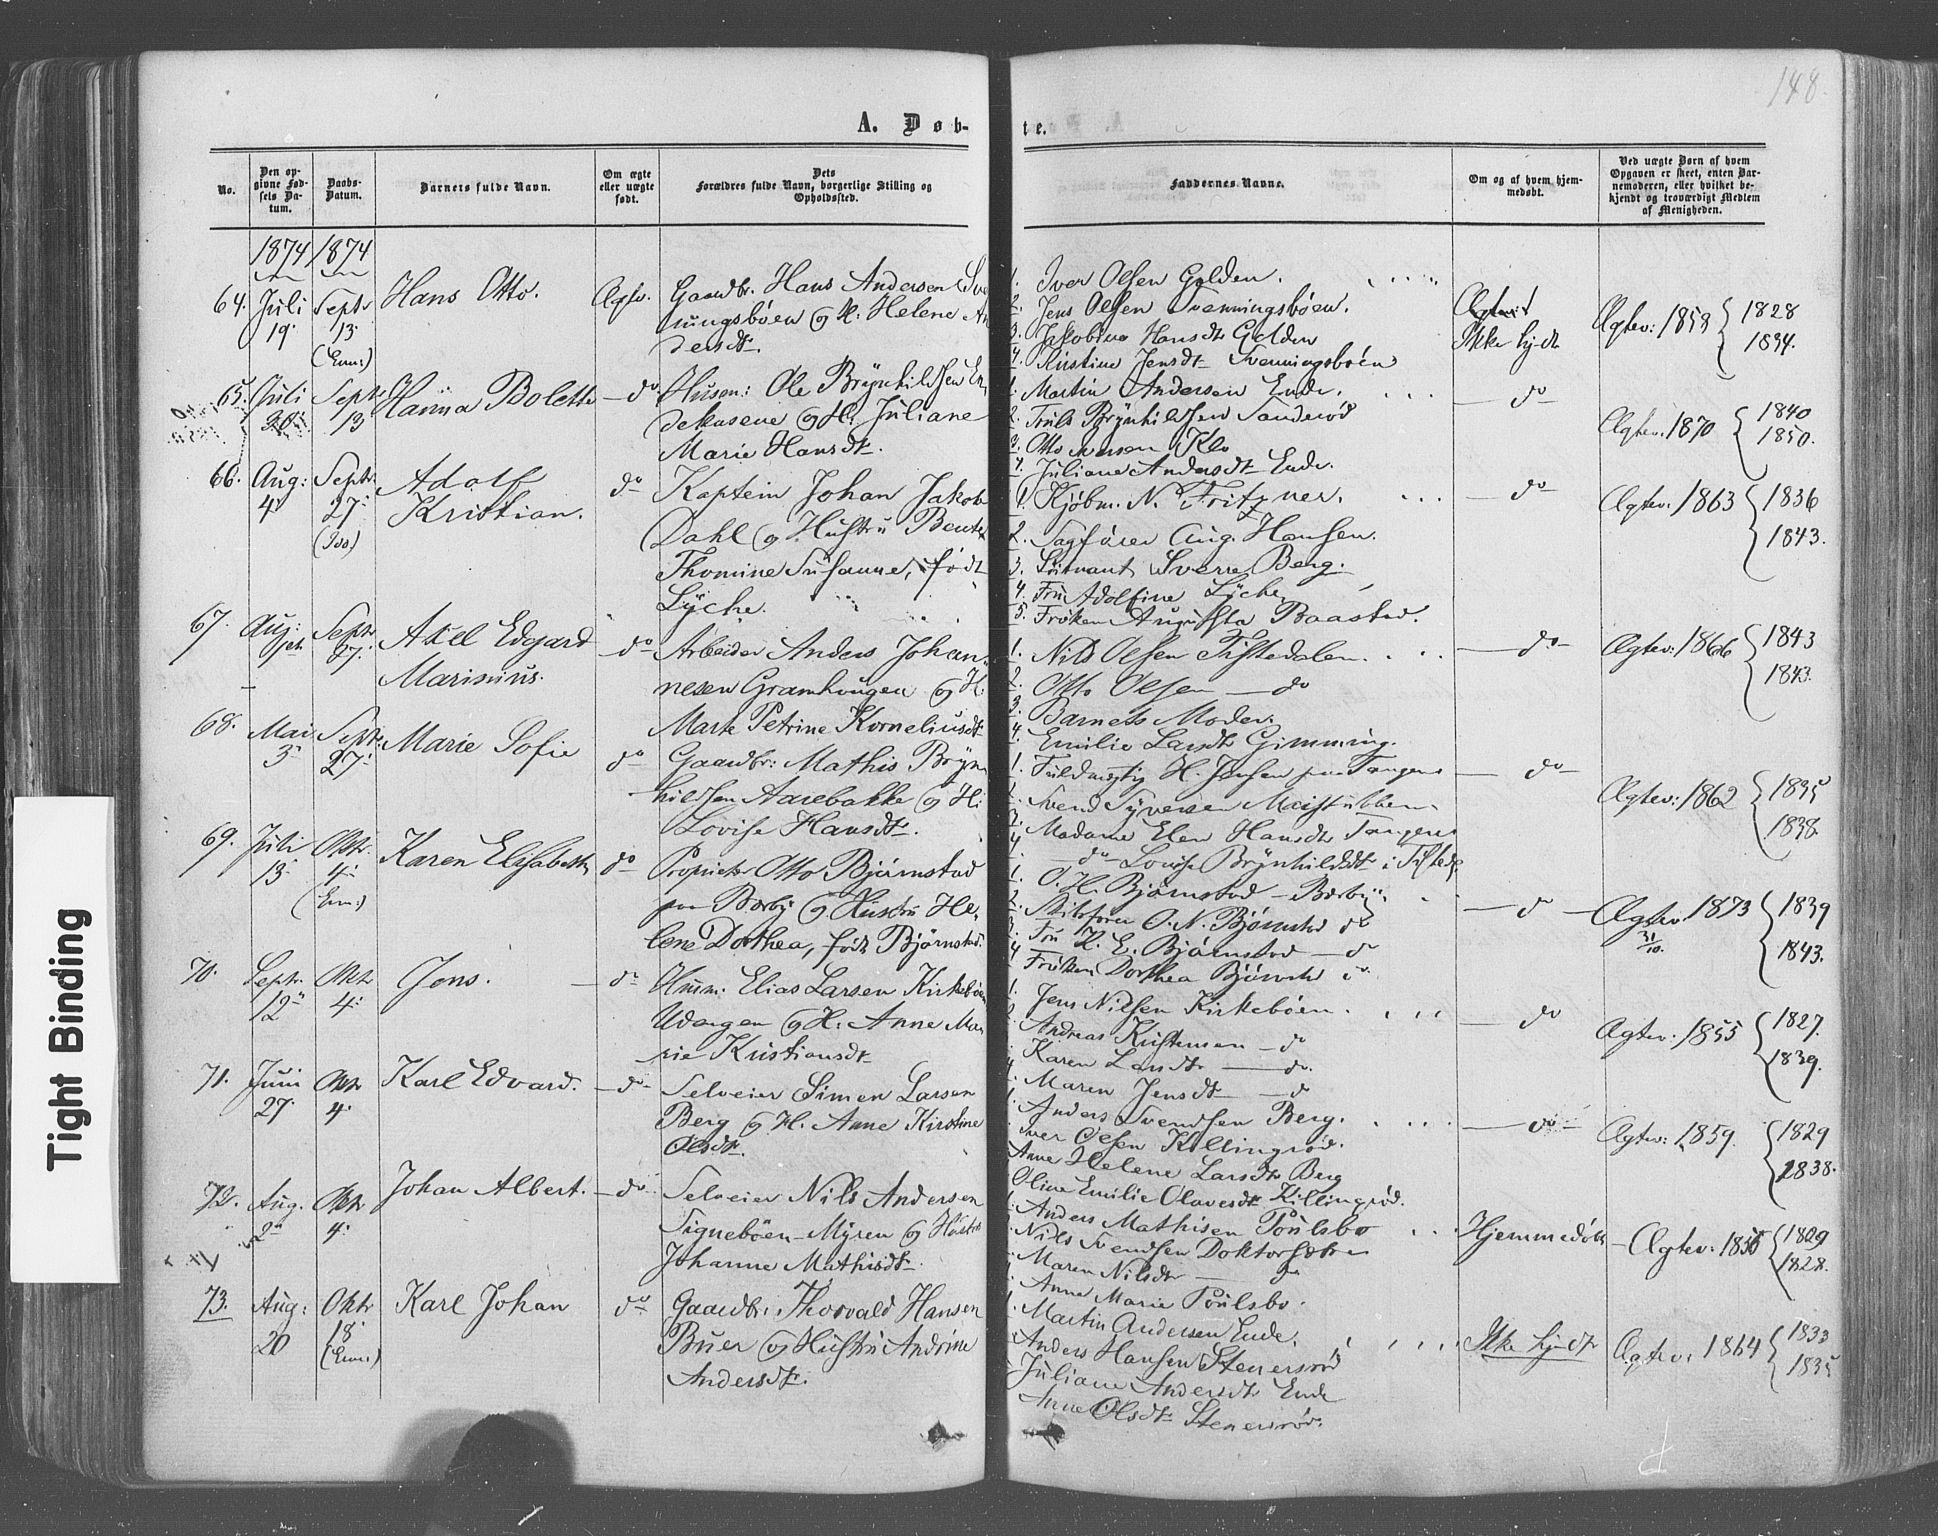 148.
A. Døb-
te.
No.
Den opgivne Fødsels Datum.
Daabs-Datum.
Barnets fulde Navn.
Om ægte eller uægte født.
Dets Forældres fulde Navn, borgerlige Stilling og Opholdssted.
Faddernes Navne.
Om og af hvem hjemmedøbt.
Ved uægte Børn af hvem Opgaven er skeet, enten Barnemoderen, eller hvilket bekjendt og troværdigt Medlem af Menigheden.
1874 1874
64. Juli 19. Septr 13. (Enn:)
Hans Otto.
Ægte.
Gaardbr. Hans Andersen Sve
nungsbøen og H. Helene An
dersdtr.
1. Iver Olsen Golden.
2. Jens Olsen Svenningsbøen.
3. Jakobine Hansdtr Golden
4. Kristine Jensdtr Svenningsbøen
Ikke hj.dt
Ægtev: 1853 { 1828
1834.
65. Juli 20. Septr 13
Hanna Bolette
do
Husm: Ole Brynhildsen En
dekasene og H. Juliane
Marie Hansdtr.
1. Martin Andersen Ende.
2. Truls Brynhildsen Sanderød
3. Otto Iversen Klo
4. Juliane Andersdtr Ende.
do
Ægtev. 1870 { 1840
1850.
66. Aug: 4. Septr. 27. (Idd)
Adolf
Kristian.
do
Kaptein Johan Jakob
Dahl og Hustru Bente
Thomine Susanne, født
Lyche.
1. Kjøbm. N. Fritzner.
2. Sagfører Aug. Hansen.
3. Sverre Berg.
4. Fru Adolfine Lyche
5. Frøken Augusta Baastad.
do
Ægtev. 1863 { 1836
1843.
67. Aug: Septr 27.
Axel Edgard
Marinius.
do
Arbeider Anders Johan
nesen Gramhougen og H.
Marte Petrine Korneliusdtr
1. Nils Olsen Tistedalen.
2. Otto Olsen do
3. Barnets Moder.
4. Emilie Larsdtr Gimming.
do
Ægtev: 1866 { 1843
1843.
68. Mai 3. Septr. 27.
Marie Sofie
do
Gaardbr: Mathis Bryn
hildsen Aarebakke og H:
Lovise Hansdtr.
1. Fuldmægtig H. Jensen paa Tangen
2. Svend Syversen Maistubben
3. Madame Elen Hansdtr Tangen
4. do Lovise Brynhildsdtr i Tistedl.
do
Ægtev: 1862 { 1835
1838.
69. Juli 13. Oktr. 4. (Enn:)
Karen Elisabeth
do
Proprietær Otto Bjørnstad
paa Bærby og Hustru He-
lene Dorthea, født Bjørnstad.
1. O. H. Bjørnstad - Bærby
2. O. N. Bjørnstad do
3. Fru H. E. Bjørnstad do
4. Frøken Dorthea Bjørnstad do.
do
Ægtev. 1873 31/10. { 1839
1843.
70. Septr. 12. Oktr 4.
Jens.
do
Husm. Elias Larsen Kirkebøen
Udengen og H. Anne Ma
rie Kristiansdtr
1. Jens Nilsen Kirkebøen.
Andreas Kristensen do
Karen Larsdtr do.
Maren Jensdtr do
do
Ægtev. 1855 { 1827.
1839.
71. Juni 27. Oktr 4.
Karl Edvard.
do
Selveier Simen Larsen
Berg og H. Anne Kirstine
Olsdtr.
Anders Svendsen Berg.
Iver Olsen Killingrød.
Anne Helene Larsdtr Berg
Oline Emilie Olavesdtr Killingrød.
do
Ægtev: 1859. { 1829
1838.
72. Aug. 2. Oktr 4.
Johan Albert.
do
Selveier Nils Andersen
Signebøen - Myren og Hustru
Johanne Mathisdtr.
Anders Mathisen Poulsbo
Nils Svendsen
Maren Nilsdtr do
Anne Marie Poulsbo.
Hjemmedøbt
Ægtev: 1855 { 1829
1828.
73. Aug: 20 Oktr 18. (Enn:)
Karl Johan
do
Gaardbr: Thorvald Hansen
Buer og Hustru Andrine
Andersdtr.
Martin Andersen Ende.
Anders Hansen Stenersrød
Juliane Andersdtr Ende
Anne Olsdtr Stenersrød.
Ikke hj.dt
Ægtev: 1864 { 1833
1835
Tight Binding